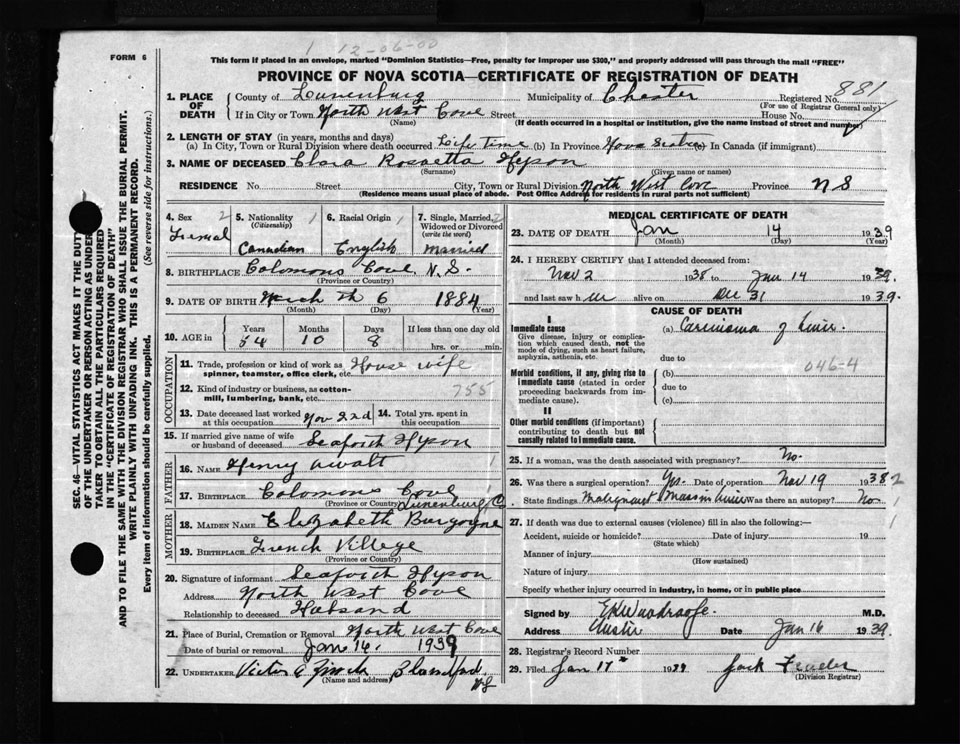 1 12-06-00
FORM 6
This form if placed in an envelope, marked "Dominion Statistics—Free, penalty for improper use $300," and properly addressed will pass through the mail "FREE"
PROVINCE OF NOVA SCOTIA—CERTIFICATE OF REGISTRATION OF DEATH
881
1. PLACE OF DEATH County of Lunenburg Municipality of Chester Registered No.
(For use of Registrar General only)
If in City or Town North West Cove Street House No.
(Name) (If death occurred in a hospital or institution, give the name instead of street and number)
2. LENGTH OF STAY (in years, months and days)
(a) In City, Town or Rural Division where death occurred Life Time (b) In Province Nova Scotia (c) In Canada (if immigrant)
3. NAME OF DECEASED Clara Rosaetta Hyson
(Surname) (Given name or names)
RESIDENCE No. Street City, Town or Rural Division North West Cove Province N S
(Residence means usual place of abode. Post Office Address for residents in rural parts not sufficient)
4. Sex 2 5. Nationality 1 6. Racial Origin 1 7. Single, Married, 2
(Citizenship) Widowed or Divorced
(write the word)
Canadian English Married
8. BIRTHPLACE Colomons Cove N. S.
(Province or Country)
9. DATE OF BIRTH March th 6 1884
(Month) (Day) (Year)
10. AGE in Years Months Days If less than one day old
54 10 8 hrs. or min.
OCCUPATION
11. Trade, profession or kind of work as House wife
spinner, teamster, office clerk, etc.
12. Kind of industry or business, as cotton- 755
mill, lumbering, bank, etc.
13. Date deceased last worked Nov 22d 14. Total yrs. spent in
at this occupation this occupation
15. If married give name of wife
or husband of deceased Seaforth Hyson
FATHER
16. NAME Henry Awalt 1
17. BIRTHPLACE Colomons Cove
(Province or Country) Lunenburg Co
MOTHER
18. MAIDEN NAME Elizabeth Burgoyne
19. BIRTHPLACE French Villege
(Province or Country)
20. Signature of informant Seaforth Hyson
Address North West Cove
Relationship to deceased Husband
21. Place of Burial, Cremation or Removal North West Cove
Date of burial or removal Jan 16, 1939
22. UNDERTAKER Blandford
(Name and address) NS
MEDICAL CERTIFICATE OF DEATH
23. DATE OF DEATH Jan 14 1939
(Month) (Day) (Year)
24. I HEREBY CERTIFY that I attended deceased from:
Nov 2 1938 to Jan 14 1939.
and last saw her alive on Dec 31 1939.
CAUSE OF DEATH
I
Immediate cause (a) Carcinoma of Liver.
Give disease, injury or complication which caused death, not the mode of dying, such as heart failure, asphyxia, asthenia, etc.
due to
046-4
Morbid conditions, if any, giving rise to (b)
immediate cause (stated in order due to
proceeding backwards from immediate cause). (c)
II
Other morbid conditions (if important)
contributing to death but not
causally related to immediate cause.
25. If a woman, was the death associated with pregnancy? No.
26. Was there a surgical operation? Yes. Date of operation Nov 19 1938 2
State findings Malignant Mass in liver Was there an autopsy? No 1
27. If death was due to external causes (violence) fill in also the following:— 1
Accident, suicide or homicide? Date of injury 19
(State which)
Manner of injury
(How sustained)
Nature of injury
Specify whether injury occurred in industry, in home, or in public place
Signed by M.D.
Address Chester Date Jan 16 1939.
28. Registrar's Record Number
29. Filed Jan 17th 1939 Jack
(Division Registrar)
SEC. 46—VITAL STATISTICS ACT MAKES IT THE DUTY
OF THE UNDERTAKER OR PERSON ACTING AS UNDER-
TAKER TO OBTAIN ALL THE PARTICULARS REQUIRED
IN THE "CERTIFICATE OF REGISTRATION OF DEATH"
AND TO FILE THE SAME WITH THE DIVISION REGISTRAR WHO SHALL ISSUE THE BURIAL PERMIT.
WRITE PLAINLY WITH UNFADING INK. THIS IS A PERMANENT RECORD.
Every item of information should be carefully supplied. (See reverse side for instructions.)